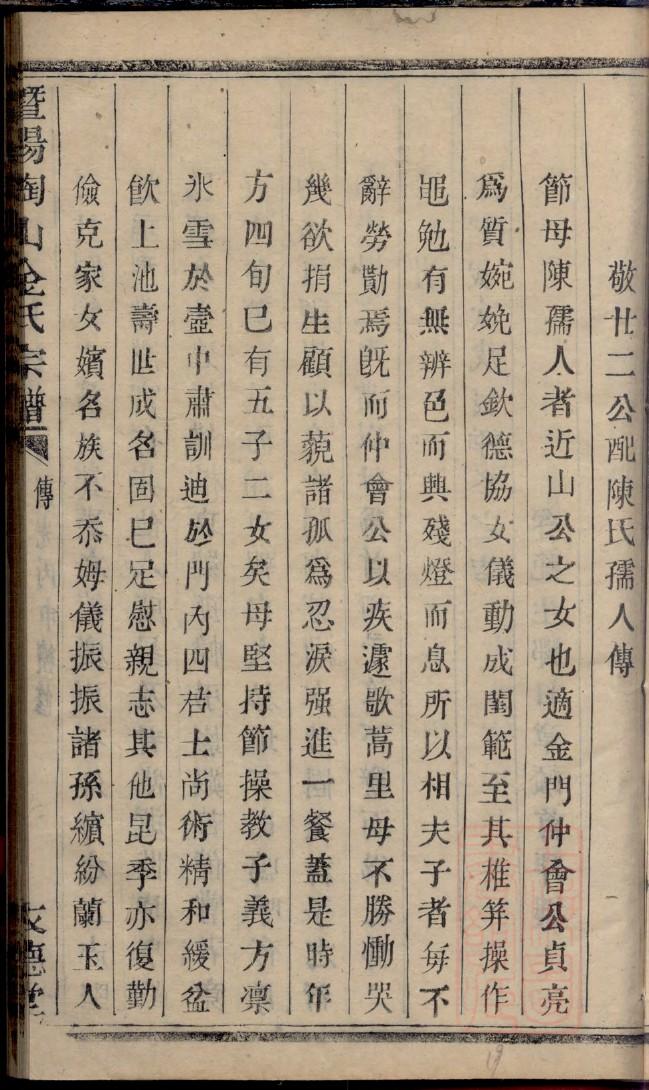 敬廿二公配陳氏孺人傳
節母陳孺人者近山公之女也適金門仲會公貞亮
為質婉娩足欽德協女儀動成閨範至其椎筓操作
黽勉有無辨色而興殘燈而息所以相夫子者每不
辭勞勩焉旣而仲會公以疾遽歌蒿里母不勝慟哭
幾欲捐生顧以藐諸孤為忍淚强進一餐蓋是時年
方四旬巳有五子二女矣母堅持節操教子義方凛
氷雪於壼中肅訓迪於門內四君上尚術精和緩盆
飲上池壽世成名固巳足慰親志其他昆季亦復勤
儉克家女嬪名族不忝姆儀振振諸孫繽紛蘭玉人
暨陽陶山金氏宗譜
傳
文德堂